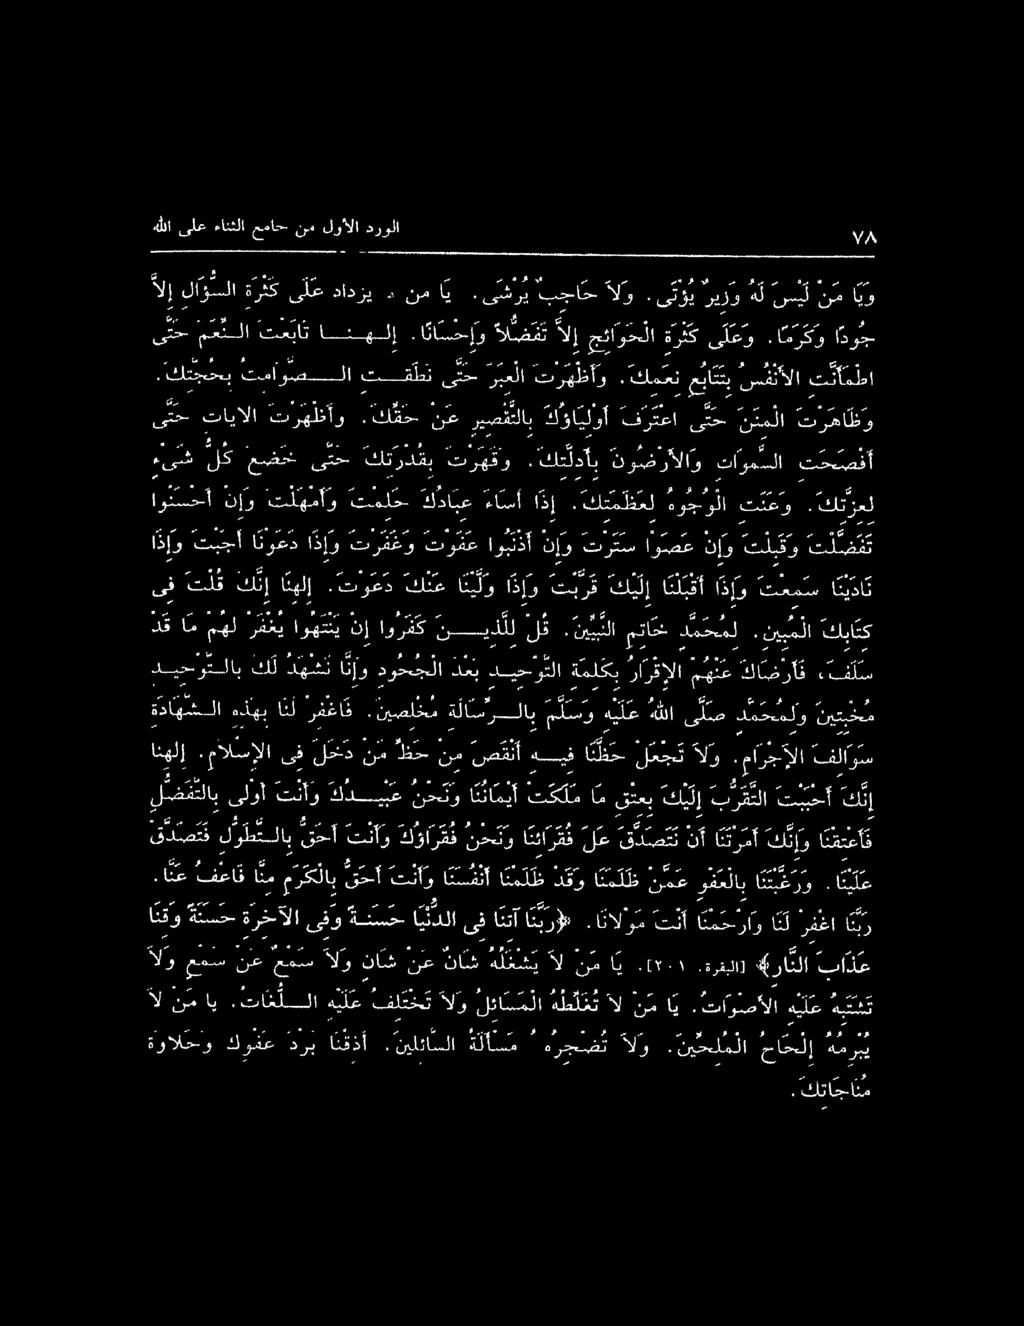 ٧٨ الورد الأول من جامع الثناء على الله
وَيَا مَنْ لَيْسَ لَهُ وَزِيرٌ يُؤْتَى. وَلاَ حَاجِبٌ يُرْشَى. يَا من لا يزداد عَلَى كَثْرَةِ السُّؤَالِ إِلاَّ
جُودًا وَكَرَمًا. وَعَلَى كَثْرَةِ الْحَوَائِجِ إِلاَّ تَفَضُّلاً وَإِحْسَانًا. إلـهـنـا تَابَعْتَ الـنِّعَمَ حَتَّى
اطْمَأَنَّتِ الأَنْفُسُ بِتَتَابُعِ نِعَمِكَ. وَأَظْهَرْتَ الْعِبَرَ حَتَّى نَطَقَـتِ الـصَّوَامِتُ بِحُجَّتِكَ.
وَظَاهَرْتَ الْمِنَنَ حَتَّى اعْتَرَفَ أَوْلِيَاؤُكَ بِالتَّقْصِيرِ عَنْ حَقِّكَ. وَأَظْهَرْتَ الآيَاتِ حَتَّى
أَفْصَحَتِ السَّمَوَاتُ وَالأَرْضُونَ بِأَدِلَّتِكَ. وَقَهَرْتَ بِقُدْرَتِكَ حَتَّى خَضَعَ كُلُّ شَىْءٍ
لِعِزَّتِكَ. وَعَنَتِ الْوُجُوهُ لِعَظَمَتِكَ. إِذَا أَسَاءَ عِبَادُكَ حَلِمْتَ وَأَمْهَلْتَ وَإِنْ أَحْسَنُوا
تَفَضَّلْتَ وَقَبِلْتَ وَإِنْ عَصَوْا سَتَرْتَ وَإِنْ أَذْنَبُوا عَفَوْتَ وَغَفَرْتَ وَإِذَا دَعَوْنَا أَجَبْتَ وَإِذَا
نَادَيْنَا سَمِعْتَ وَإِذَا أَقْبَلْنَا إِلَيْكَ قَرَّبْتَ وَإِذَا وَلَّيْنَا عَنْكَ دَعَوْتَ. إِلهَنَا إِنَّكَ قُلْتَ فِى
كِتَابِكَ الْمُبِينِ. لِمُحَمَّدٍ خَاتِمِ النَّبِيِّينَ. قُلْ لِلَّذِيـنَ كَفَرُوا إِنْ يَنْتَهُوا يُغْفَرْ لَهُمْ مَا قَدْ
سَلَفَ، فَأَرْضَاكَ عَنْهُمْ الإِقْرَارُ بِكَلِمَةِ التَّوْحِيـدِ بَعْدَ الْجُحُودِ وَإِنَّا نَشْهَدُ لَكَ بِالـتَّوْحِيـدِ
مُخْبِتِينَ وَلِمُحَمَّدٍ صَلَّى اللهُ عَلَيْهِ وَسَلَّمَ بِالـرِّسَالَةِ مُخْلِصِينَ. فَاغْفِرْ لَنَا بِهَذِهِ الـشَّهَادَةِ
سَوَالِفَ الإِجْرَامِ. وَلاَ تَجْعَلْ حَظَّنَا فِيـهِ أَنْقَصَ مِنْ حَظِّ مَنْ دَخَلَ فِى الإِسْلاَمِ. إِلهَنَا
إِنَّكَ أَحْبَبْتَ التَّقَرُّبَ إِلَيْكَ بِعِتْقِ مَا مَلَكَتْ أَيْمَانُنَا وَنَحْنُ عَبِيـدُكَ وَأَنْتَ أَوْلَى بِالتَّفَضُّلِ
فَأَعْتِقْنَا وَإِنَّكَ أَمَرْتَنَا أَنْ نَتَصَدَّقَ عَلَ فُقَرَائِنَا وَنَحْنُ فُقَرَاؤُكَ وَأَنْتَ أَحَقُّ بِالـتَّطَوُّلِ فَتَصَدَّقْ
عَلَيْنَا. وَرَغَّبْتَنَا بِالْعَفْوِ عَمَّنْ ظَلَمَنَا وَقَدْ ظَلَمْنَا أَنْفُسَنَا وَأَنْتَ أَحَقُّ بِالْكَرَمِ مِنَّا فَاعْفُ عَنَّا.
رَبَّنَا اغْفِرْ لَنَا وَارْحَمْنَا أَنْتَ مَوْلاَنَا. ﴿رَبَّنَا آتِنَا فِى الدُّنْيَا حَسَنَـةً وَفِى الآخِرَةِ حَسَنَةً وَقِنَا
عَذَابَ النَّارِ﴾ [البقرة. ٢٠١]. يَا مَنْ لاَ يَشْغَلُهُ شَانٌ عَنْ شَانٍ وَلاَ سَمْعٌ عَنْ سَمْعٍ وَلاَ
تَشْتَبِهُ عَلَيْهِ الأَصْوَاتُ. يَا مَنْ لاَ تُغَلِّطُهُ الْمَسَائِلُ وَلاَ تَخْتَلِفُ عَلَيْهِ الـلُّغَاتُ. يَا مَنْ لاَ
يُبْرِمُهُ إِلْحَاحُ الْمُلِحِّينَ. وَلاَ تُضْجِرُهُ مَسْأَلَةُ السَّائِلِينَ. أَذِقْنَا بَرْدَ عَفْوِكَ وَحَلاَوَةَ
مُنَاجَاتِكَ.